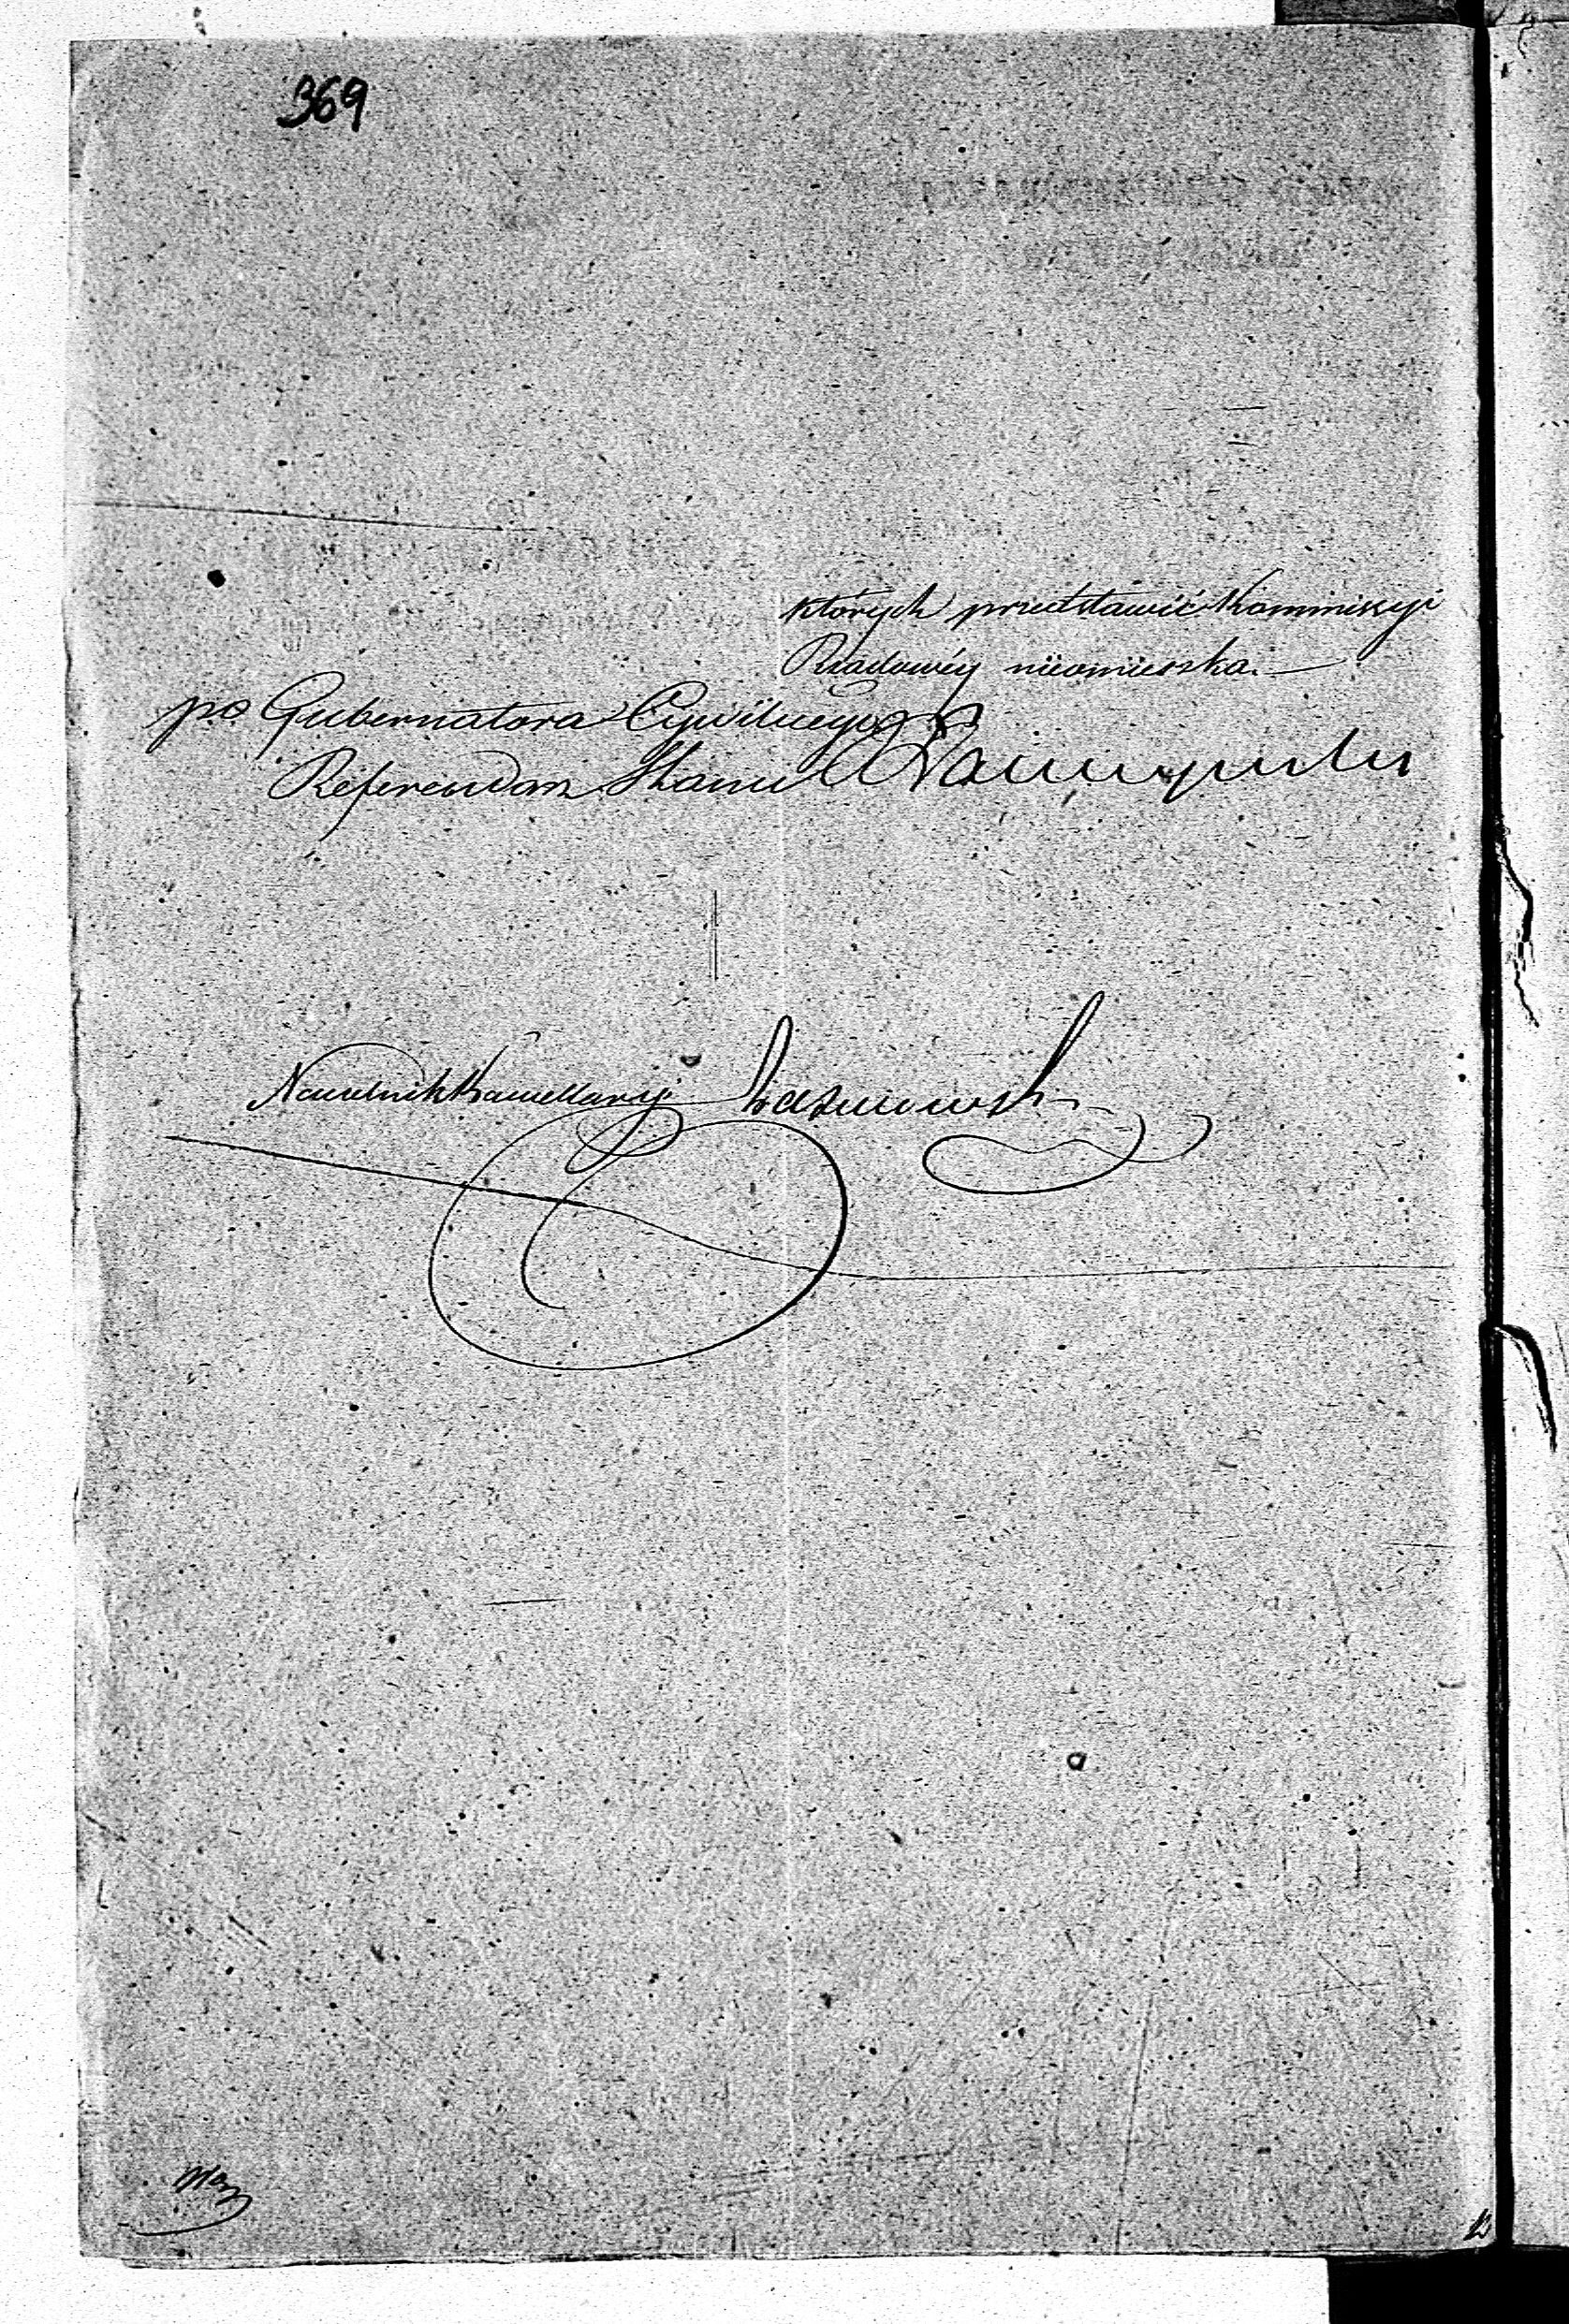 369
których przedstawić Kommissyi
Rządowéy nieomieszka.
po Gubernatora Cywilnego
Referendarz Stanu
Naczelnik Kancellaryi